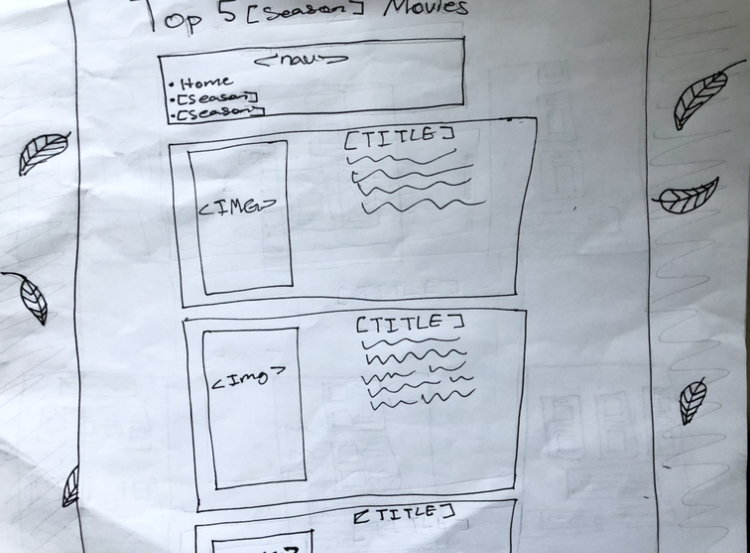 Top 5 [Season] Movies
<nav>
• Home
• [Season]
• [Season]
[TITLE]
<IMG>
[TITLE]
<Img>
[TITLE]